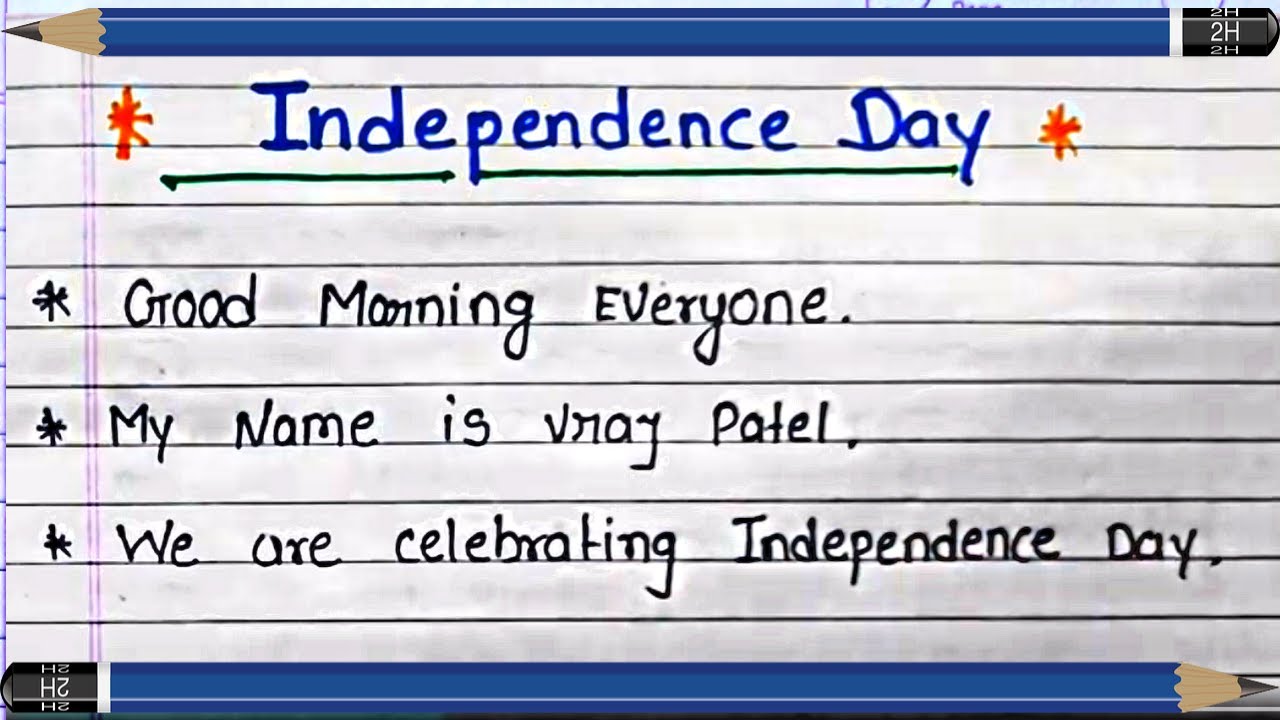 2H
2H
2H
* Independence Day *
* Good Morning Everyone.
* My Name is Vraj Patel.
* We are celebrating Independence Day.
2H
2H
2H